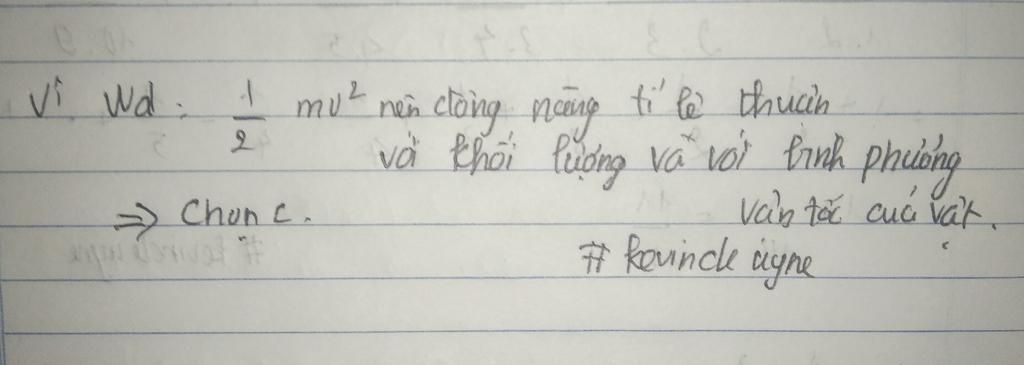 Vì Wd : 1/2 mv² nên động năng tỉ lệ thuận
với khối lượng và với bình phương
=> Chọn C. vận tốc của vật.
# kevincle uyne